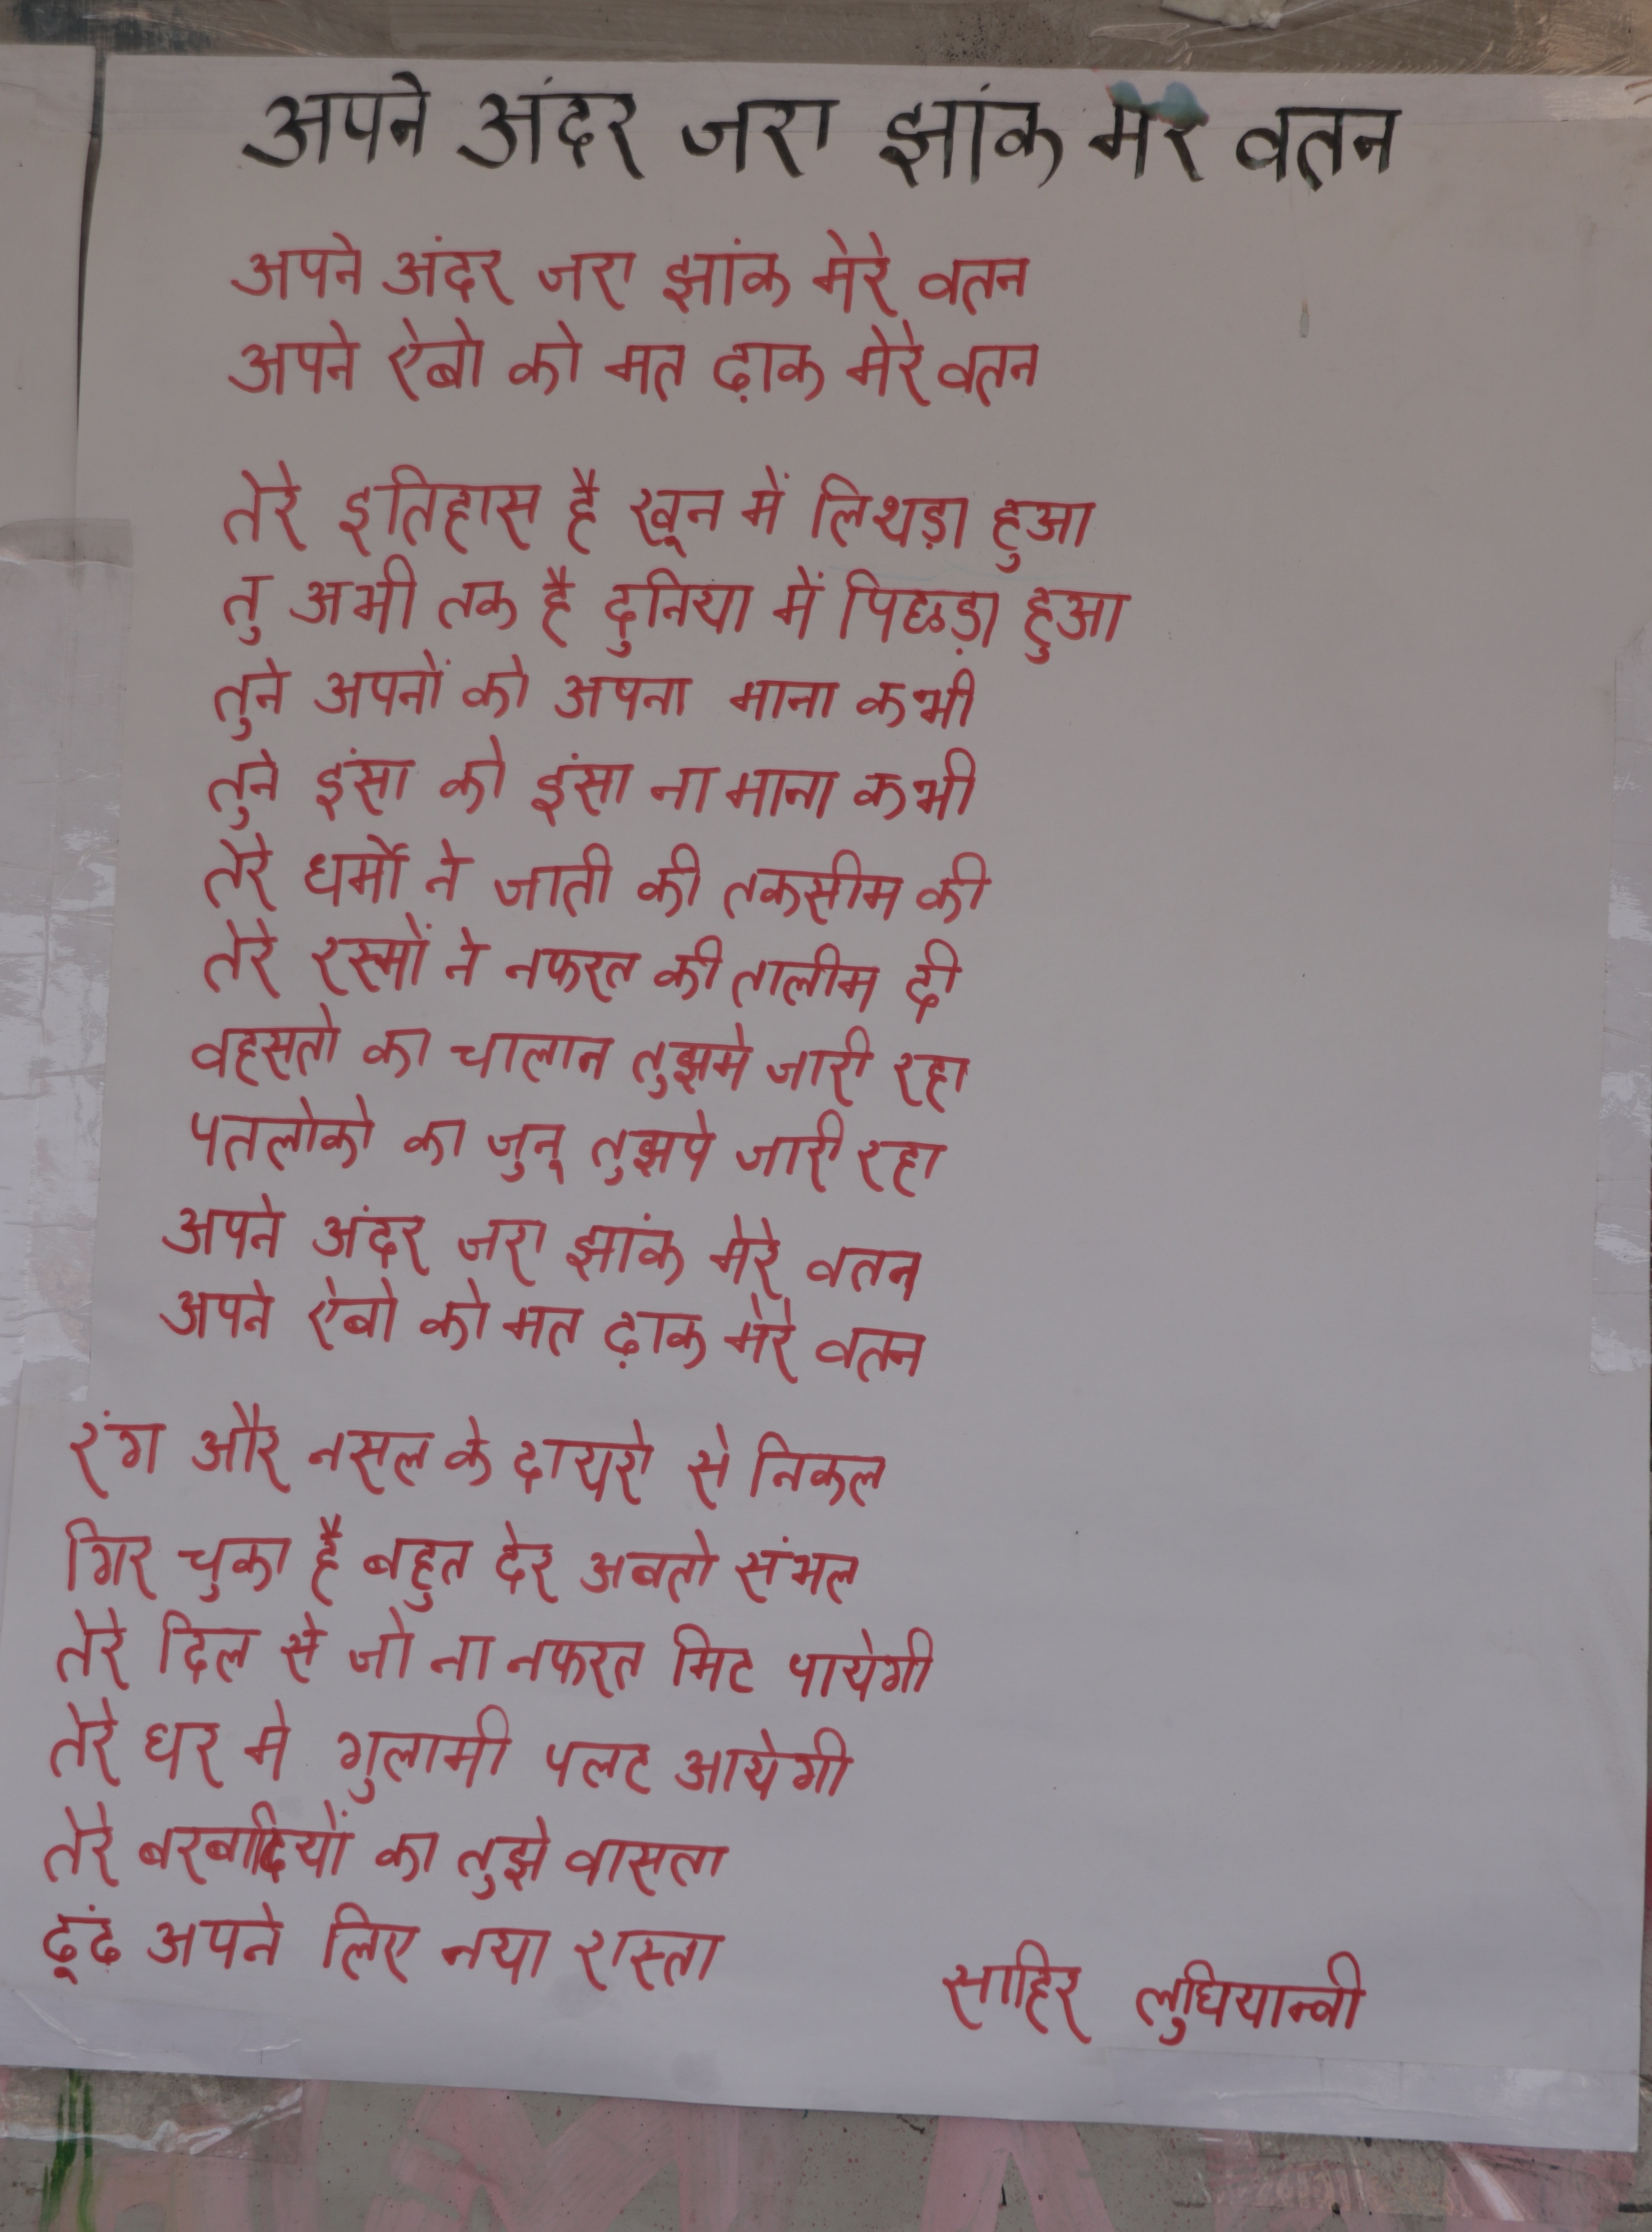 अपने अंदर जरा झांक मेरे वतन
अपने अंदर जरा झांक मेरे वतन
अपने ऐबो को मत ढ़ाक मेरे वतन
तेरे इतिहास है खून में लिथड़ा हुआ
तु अभी तक है दुनिया में पिछड़ा हुआ
तुने अपनों को अपना माना कभी
तुने इंसा को इंसा ना माना कभी
तेरे धर्मो ने जाती की तकसीम की
तेरे रस्मों ने नफरत की तालीम दी
वहसतो का चालान तुझमे जारी रहा
पतलोको का जुनू तुझपे जारी रहा
अपने अंदर जरा झांक मेरे वतन
अपने ऐबो को मत ढ़ाक मेरे वतन
रंग और नसल के दायरो से निकल
गिर चुका है बहुत देर अबतो संभल
तेरे दिल से जो ना नफरत मिट पायेगी
तेरे घर मे गुलामी पलट आयेगी
तेरे बरबादियों का तुझे वासता
ढूंढ अपने लिए नया रास्ता
साहिर लुधियान्वी